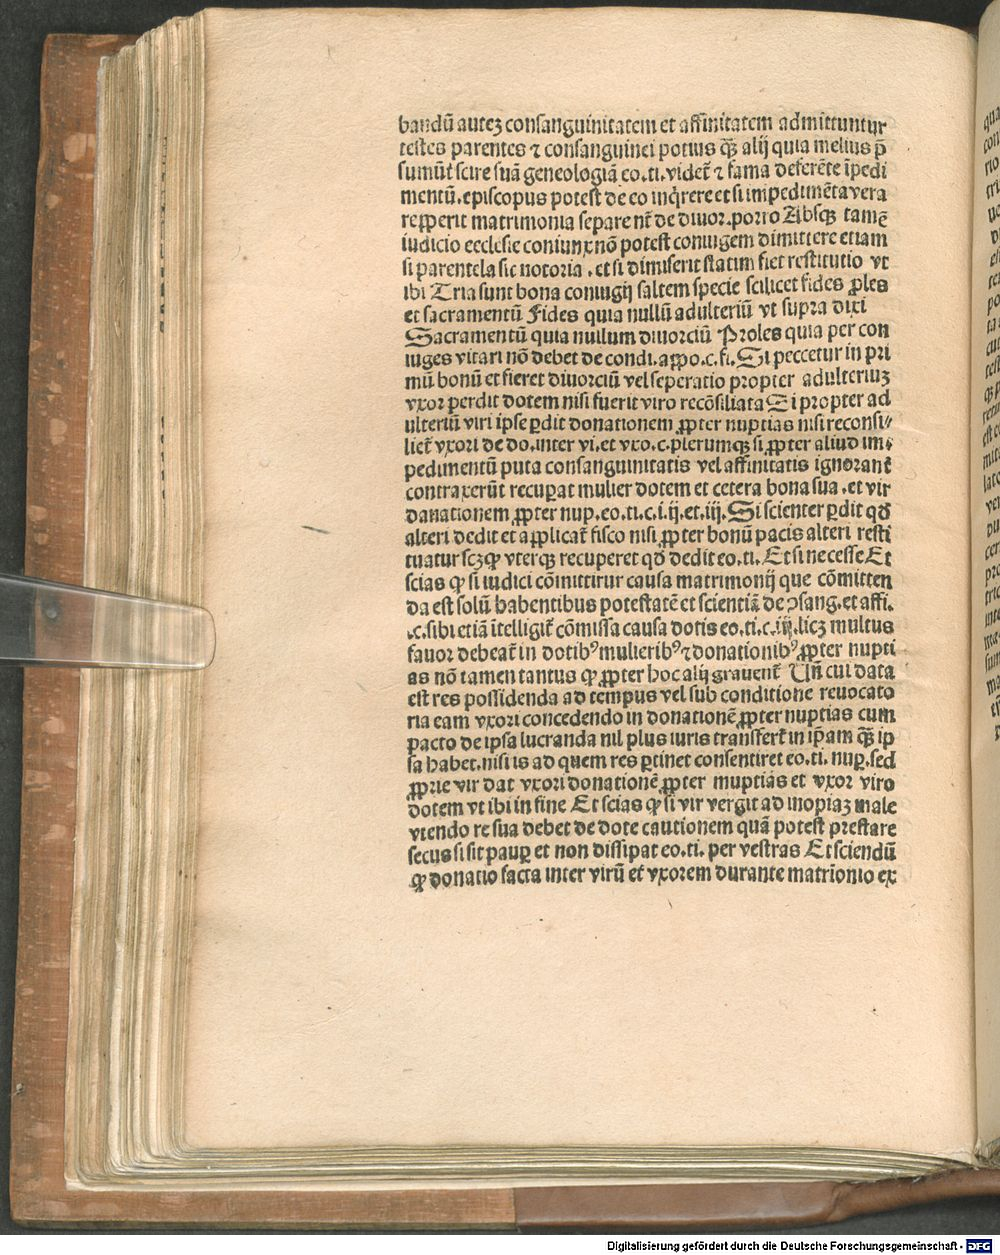 bandū autez consanguinitatem et affinitatem admittuntur
testes parentes ⁊ consanguinei potius qȝ̄ alij quia melius p̄
sumūt scire suā geneologiā eo.ti.videt̄ ⁊ fama deferēte īpedi
mentū.episcopus potest de eo inq̄rere et si impedimēta vera
repperit matrimonia separe nt̄ de diuor.porro Absqȝ tamē
iudicio ecclesie coniunx nō potest coniugem dimittere etiam
si parentela sic notoria.et si dimiserit statim fiet restitutio vt
ibi Tria sunt bona coniugij saltem specie scilicet fides ꝓles
et sacramentū Fides quia nullū adulteriū vt supra dixi
Sacramentū quia nullum diuorciū Proles quia per con
iuges vitari nō debet de condi.appo.c.fi.Si peccetur in pri
mū bonū et fieret diuorciū vel seperatio propter adulteriuȝ
vxor perdit dotem nisi fuerit viro recōsiliata Si propter ad
ulteriū viri ipse ꝑdit donationem ꝓpter nuptias nisi reconsi⸗
liet̄ vxori de do.inter vi.et vxo.c.plerumqȝ si ꝓpter aliud im⸗
pedimentū puta consanguinitatis vel affinitatis ignorant̄
contraxerūt recuꝑat mulier dotem et cetera bona sua.et vir
danationem ꝓpter nup.eo.ti.c.i.ij.et.iij.Si scienter ꝑdit qđ
alteri dedit et applicat̄ fisco nisi ꝓpter bonū pacis alteri resti
tuatur scȝ ꝙ vterqȝ recuperet qđ dedit eo.ti.Et si necesse Et
scias ꝙ si iudici cōmittirur causa matrimonij que cōmitten
da est solū habentibus potestatē et scientiā de ꝯsang.et affi.
.c.sibi etiā ītelligit̄ cōmissa causa dotis eo.ti.c.iij.licȝ multus
fauor debeat̄ in dotibꝰ mulieribꝰ ⁊ donationibꝰ ꝓpter nupti
as nō tamen tantus ꝙ ꝓpter hoc alij grauent̄ Un̄ cui data
est res possidenda ad tempus vel sub conditione reuocato
ria eam vxori concedendo in donationē ꝓpter nuptias cum
pacto de ipsa lucranda nil plus iuris transfert̄ in ip̄am qȝ̄ ip
sa habet.nisi is ad quem res ꝑtinet consentiret eo.ti.nuꝑ.sed
ꝓprie vir dat vxori donationē ꝓpter muptias et vxor viro
dotem vt ibi in fine Et scias ꝙ si vir vergit ad inopiaȝ male
vtendo re sua debet de dote cautionem quā potest prestare
secus si sit pauꝑ et non dissipat eo.ti.per vestras Et sciendū
ꝙ donatio facta inter virū et vxorem durante matrīonio ex
Digitalisierung gefördert durch die Deutsche Forschungsgemeinschaft - DFG